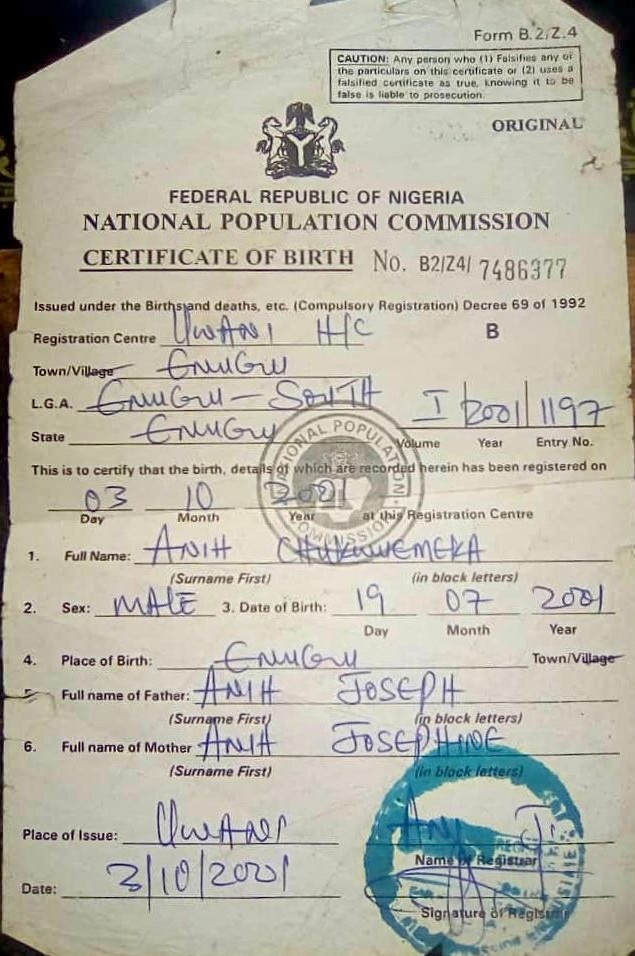 Form B.2/Z.4
CAUTION: Any person who (1) Falsifies any of
the particulars on this certificate or (2) uses a
falsified certificate as true, knowing it to be
false is liable to prosecution.
ORIGINAL
FEDERAL REPUBLIC OF NIGERIA
NATIONAL POPULATION COMMISSION
CERTIFICATE OF BIRTH No. B2/Z4/ 7486377
Issued under the Births and deaths, etc. (Compulsory Registration) Decree 69 of 1992
Registration Centre UWANI H/C B
Town/Village ENUGU
L.G.A. ENUGU - SOUTH I/2001/1197
State ENUGU Volume Year Entry No.
NATIONAL POPULATION COMMISSION
This is to certify that the birth, details of which are recorded herein has been registered on
03 10 2001 at this Registration Centre
Day Month Year
1. Full Name: ANIH CHUKWUEMEKA
(Surname First) (in block letters)
2. Sex: MALE 3. Date of Birth: 19 07 2001
Day Month Year
4. Place of Birth: ENUGU Town/Village
5. Full name of Father: ANIH JOSEPH
(Surname First) (in block letters)
6. Full name of Mother ANIH JOSEPHINE
(Surname First) (in block letters)
Place of Issue: UWANI
Name of Registrar
Date: 3/10/2001
Signature of Registrar